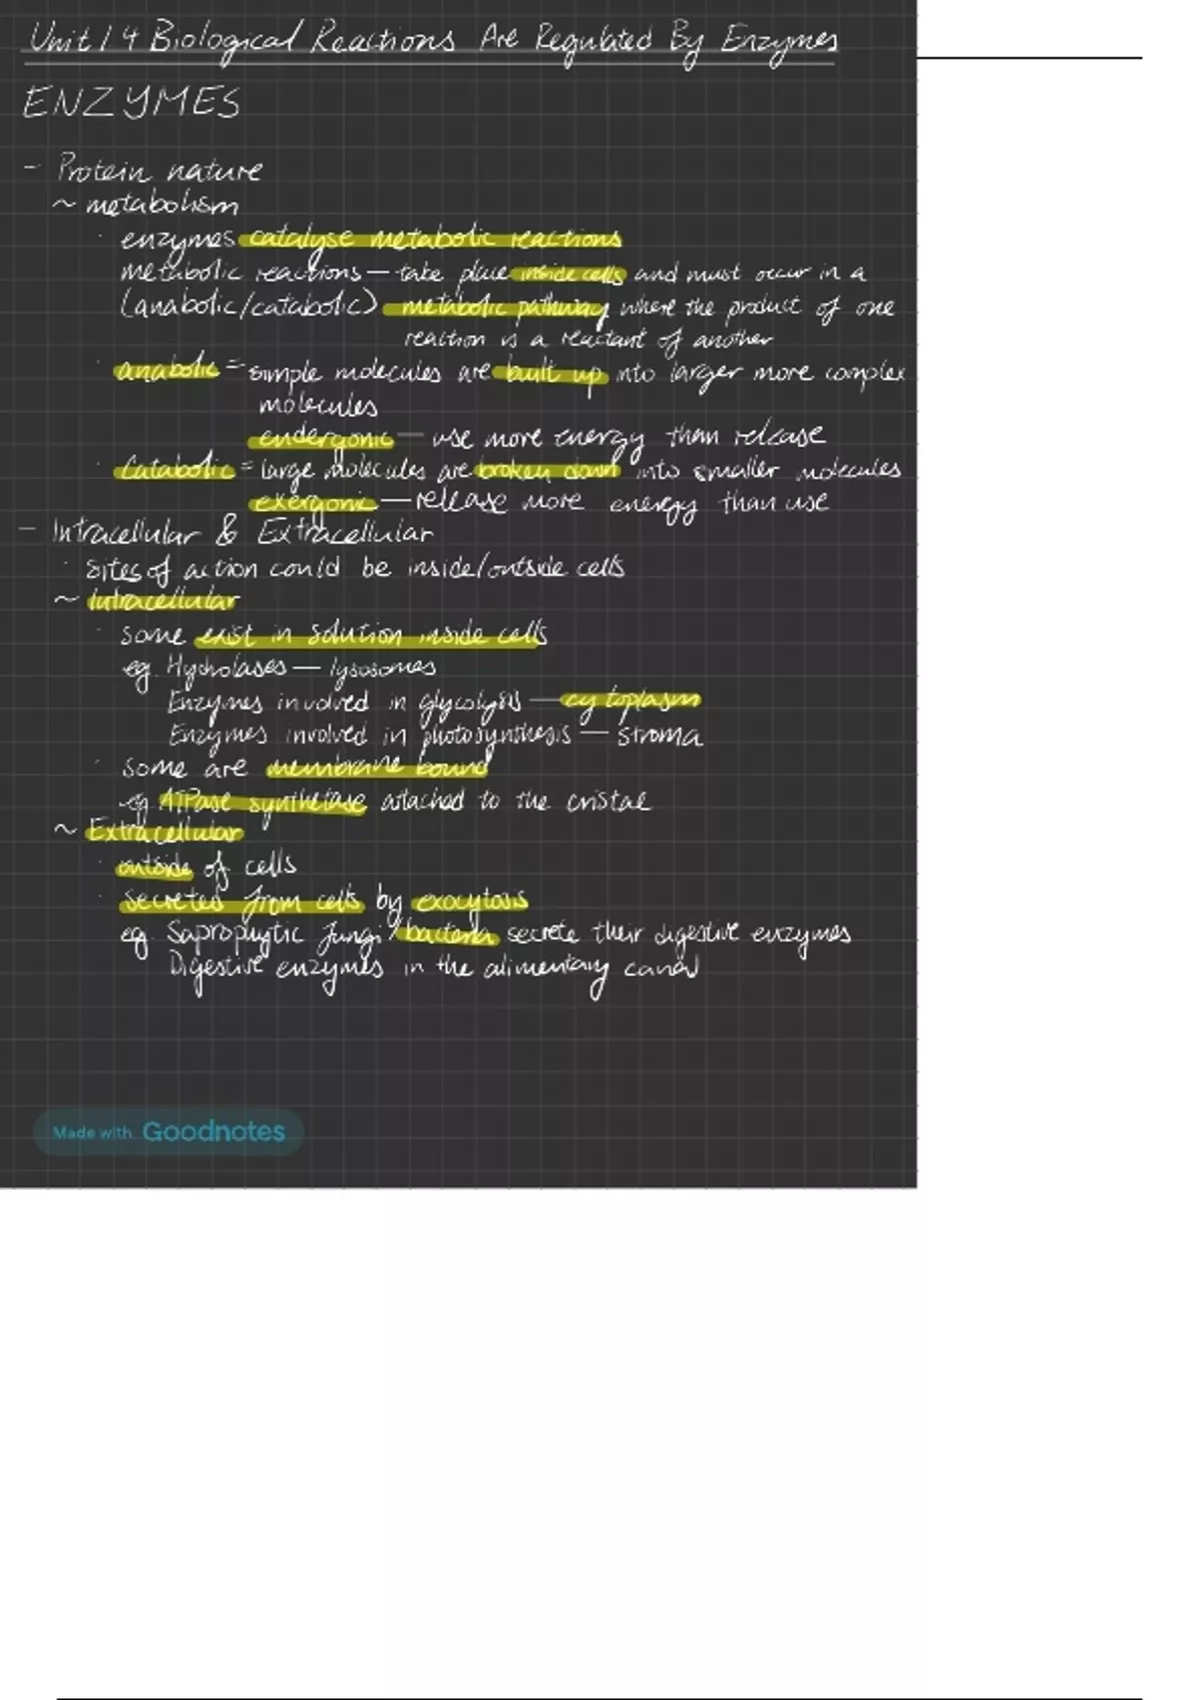 Unit 1 4 Biological Reactions Are Regulated By Enzymes
ENZYMES
- Protein nature
~ metabolism
· enzymes catalyse metabolic reactions
metabolic reactions — take place inside cells and must occur in a
(anabolic/catabolic) metabolic pathway where the product of one
reaction is a reactant of another
· anabolic = simple molecules are built up into larger more complex
molecules
endergonic — use more energy than release
· Catabolic = large molecules are broken down into smaller molecules
exergonic — release more energy than use
- Intracellular & Extracellular
· Sites of action could be inside/outside cells
~ Intracellular
· some exist in solution inside cells
eg. Hydrolases — lysosomes
Enzymes involved in glycolysis — cytoplasm
Enzymes involved in photosynthesis — stroma
· some are membrane bound
eg ATPase synthetase attached to the cristae
~ Extracellular
· outside of cells
· secreted from cells by exocytosis
eg. Saprophytic fungi/bacteria secrete their digestive enzymes
Digestive enzymes in the alimentary canal
Made with Goodnotes